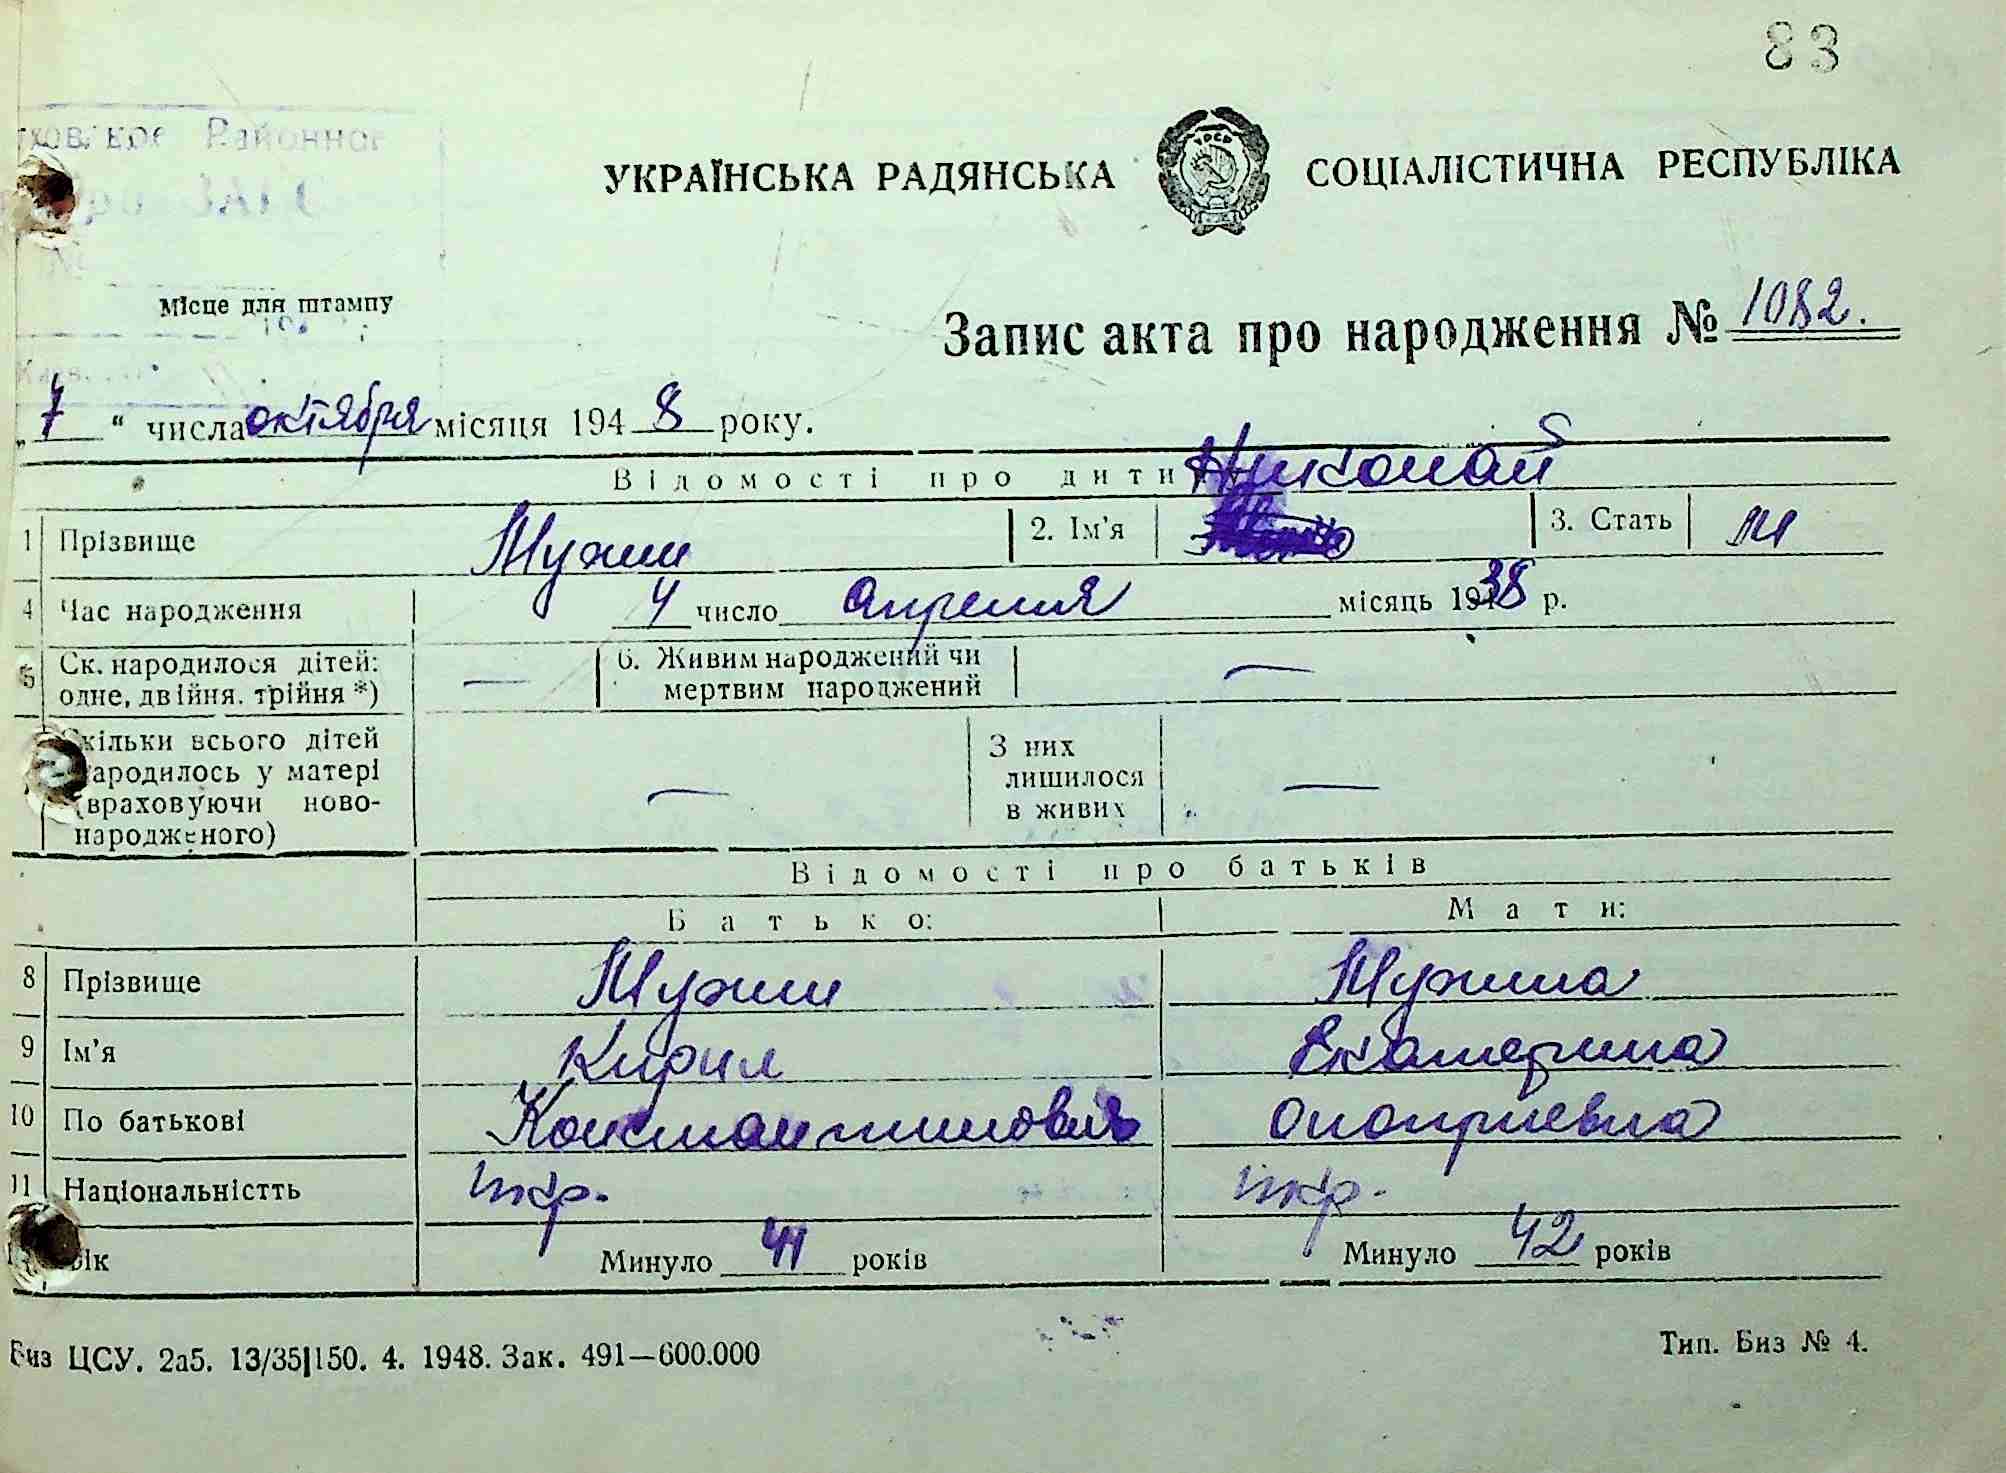 83
Районное
ЗАГС
УКРАЇНСЬКА РАДЯНСЬКА СОЦІАЛІСТИЧНА РЕСПУБЛІКА
Місце для штампу
Запис акта про народження № 1082.
„7“ числа октября місяця 1948 року.
Відомості про дити Николай
1 Прізвище Мужин 2. Ім'я 3. Стать м
4 Час народження 4 число апреля місяць 1938 р.
5 Ск. народилося дітей: — 6. Живим народжений чи —
одне, двійня, трійня *) мертвим народжений
кільки всього дітей З них
ародилось у матері — лишилося —
(враховуючи ново- в живих
народженого)
Відомості про батьків
Батько: Мати:
8 Прізвище Мужин Мужина
9 Ім'я Кирил Екатерина
10 По батькові Константинович Оноприевна
11 Національністть укр. укр.
ік Минуло 41 років Минуло 42 років
Биз ЦСУ. 2а5. 13/35|150. 4. 1948. Зак. 491—600.000 Тип. Биз № 4.